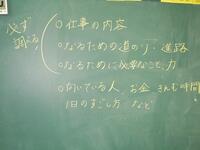 必ず
調べる!
○仕事の内容
○なるための道のり・進路
○なるために必要なこと、力
○向いている人、お金、きんむ時間
1日のすごし方 など